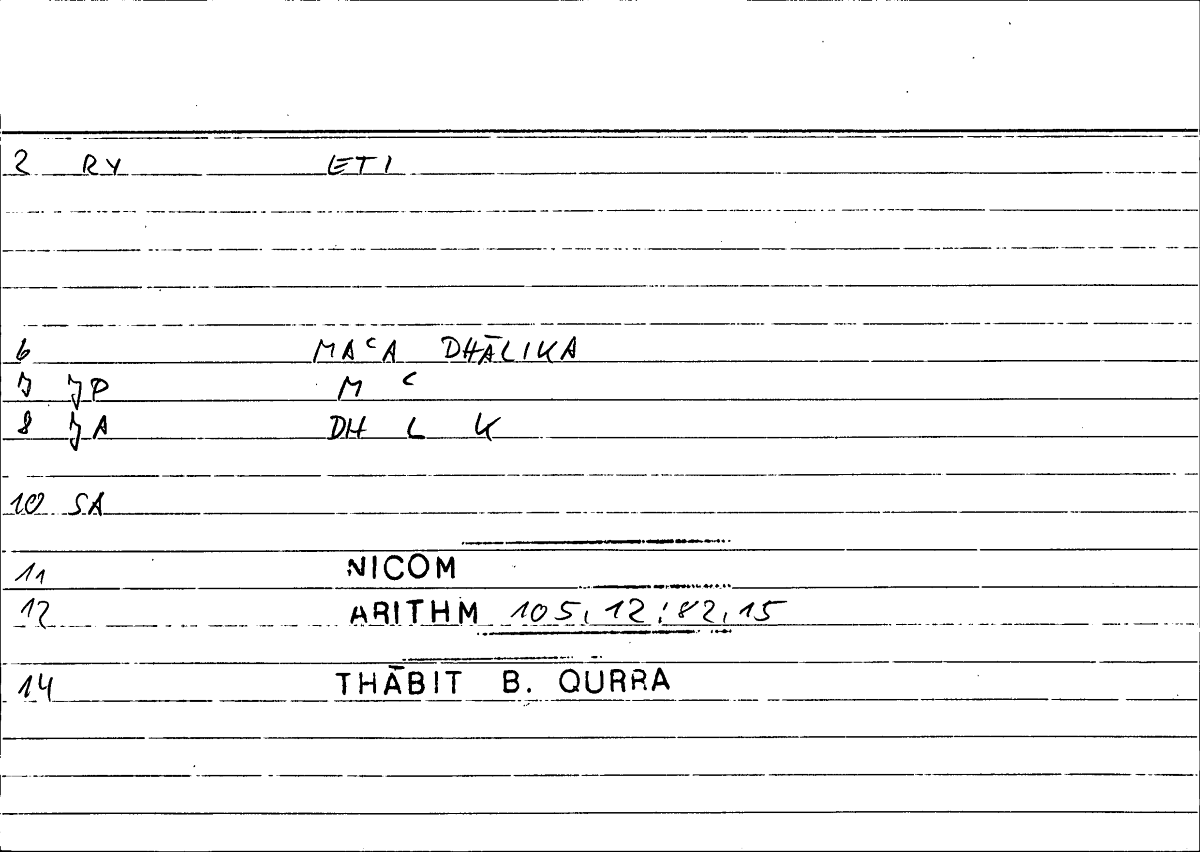 2 RY ETI
6 MAᶜA DHĀLIKA
7 JP M ᶜ
8 JA DH L K
10 SA
11 NICOM
12 ARITHM 105,12:82,15
14 THĀBIT B. QURRA